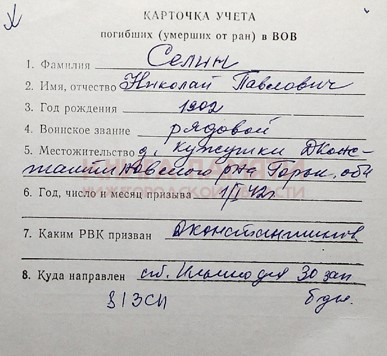 КАРТОЧКА УЧЕТА
погибших (умерших от ран) в ВОВ
1. Фамилия Селин
2. Имя, отчество Николай Павлович
3. Год рождения 1902
4. Воинское звание рядовой
5. Местожительство д. Кужушки Дконс-
тантиновского р-на Горьк. обл
КНИГА ПАМЯТИ
НИЖЕГОРОДСКОЙ ОБЛАСТИ
6. Год, число и месяц призыва 1/I 42г
7. Каким РВК призван Дконстантинов
8. Куда направлен ст. Ильино для 30 зап
813СП бды.